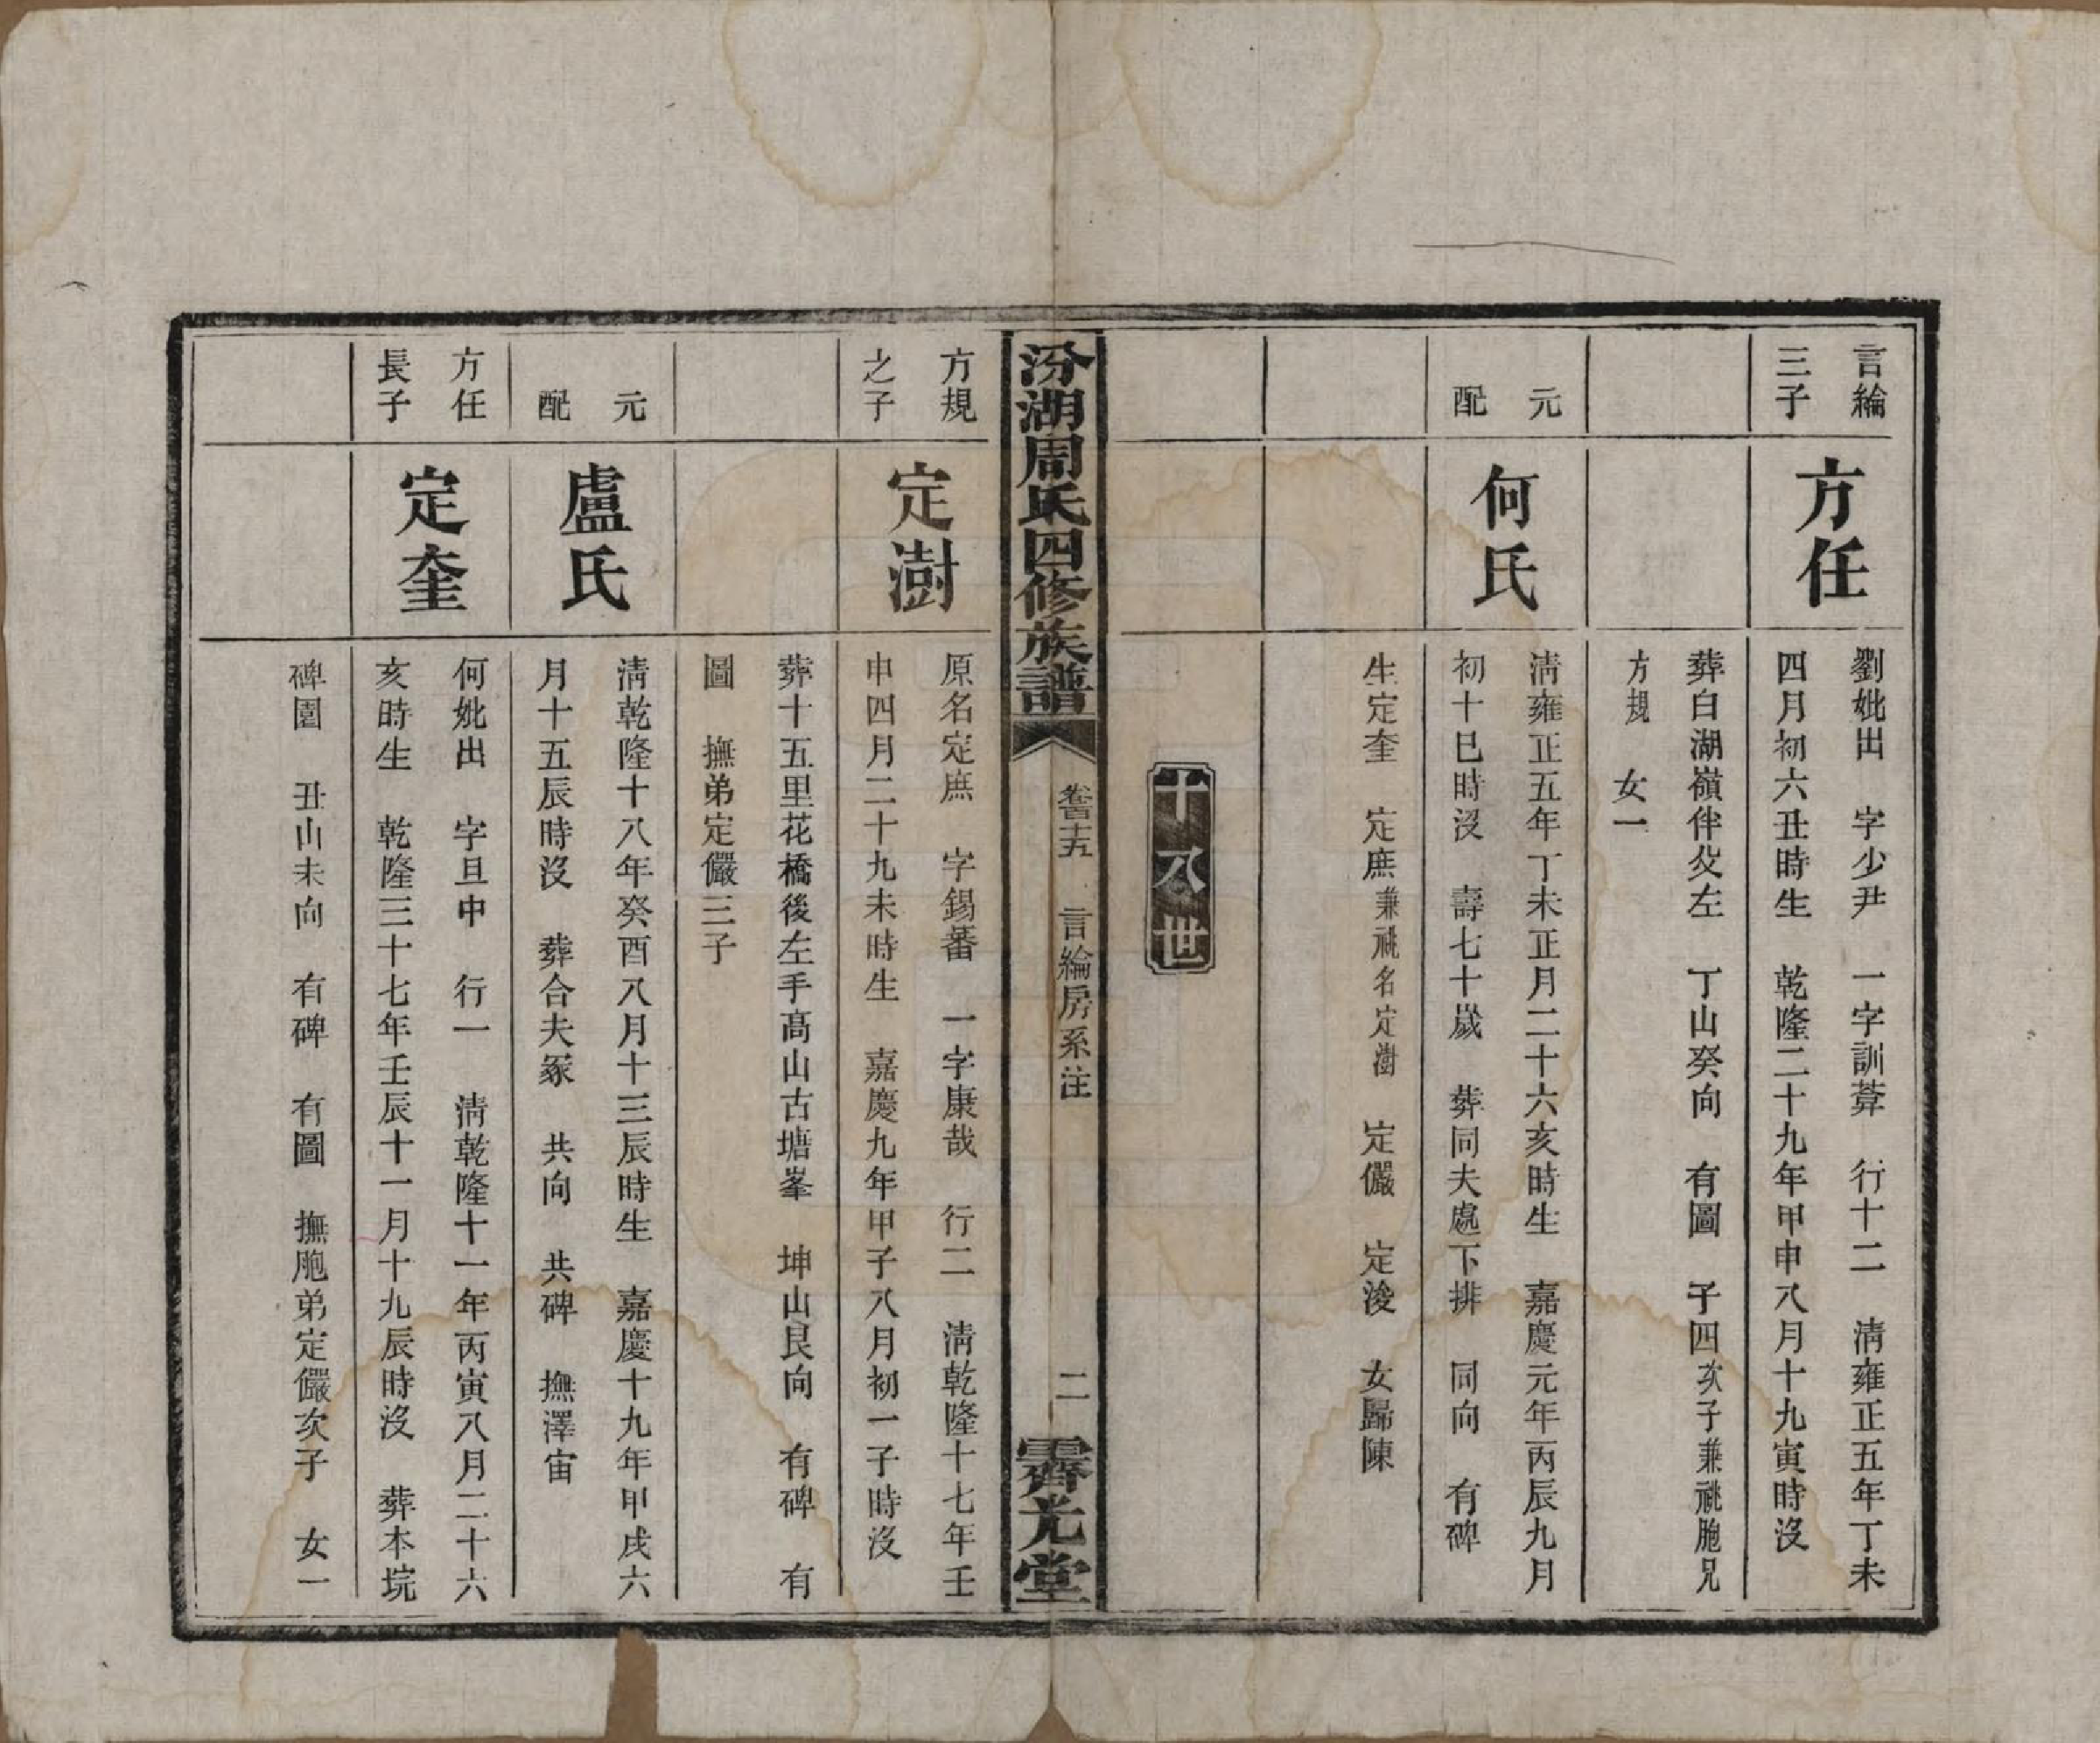 言綸
三子
方任
劉妣出　字少尹　一字訓葊　行十二　淸雍正五年丁未
四月初六丑時生　乾隆二十九年甲申八月十九寅時沒
葬白湖嶺伴父左　丁山癸向　有圖　子四次子兼祧胞兄
方規　女一
元
配
何氏
淸雍正五年丁未正月二十六亥時生　嘉慶元年丙辰九月
初十巳時沒　壽七十歲　葬同夫處下排　同向　有碑
生定奎　定庶兼祧名定澍　定儼　定浚　女歸陳
十八世
汾湖周氏四修族譜
卷　　言綸房系注
二
霽光堂
方規
之子
定澍
原名定庶　字錫蕃　一字康哉　行二　淸乾隆十七年壬
申四月二十九未時生　嘉慶九年甲子八月初一子時沒
葬十五里花橋後左手高山古塘峯　坤山艮向　有碑　有
圖　撫弟定儼三子
元
配
盧氏
淸乾隆十八年癸酉八月十三辰時生　嘉慶十九年甲戌六
月十五辰時沒　葬合夫冢　共向　共碑　撫澤宙
方任
長子
定奎
何妣出　字旦申　行一　淸乾隆十一年丙寅八月二十六
亥時生　乾隆三十七年壬辰十一月十九辰時沒　葬本垸
碑園　丑山未向　有碑　有圖　撫胞弟定儼次子　女一